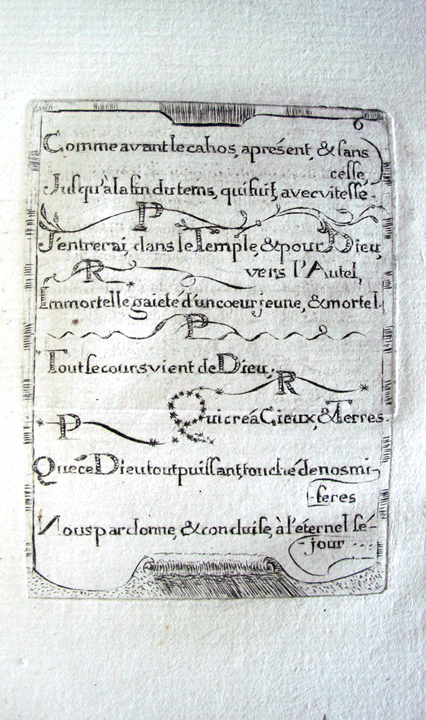 6
Comme avant le cahos, a présent, & sans
cesse,
Jusqu'à la fin du tems, qui fuit, avec vitesse.
P
J'entrerai, dans le Temple, & pour Dieu,
R vers l'Autel,
Immortelle gaieté d'un coeur jeune, & mortel.
P
Tout secours vient de Dieu,
R
Qui créa Cieux, & Terres.
P
Que cé Dieu tout puissant, touché de nos mi-
seres
Nous pardonne, & conduise, à l'éternel sé-
jour